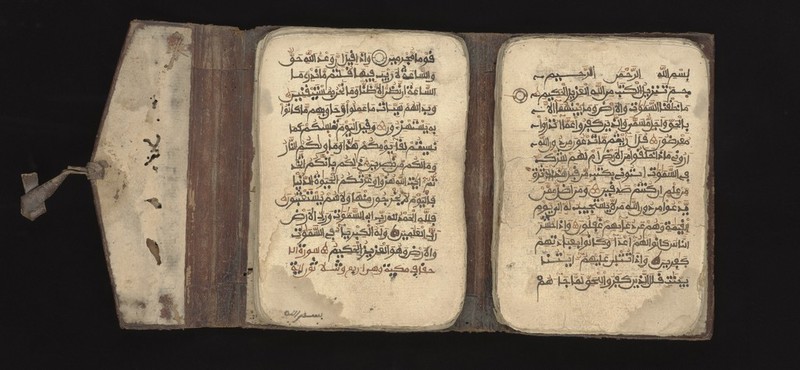 قوما مجرمين وإذا قيل إن وعد الله حق
والساعة لا ريب فيها قلتم ما ندري ما
الساعة إن نظن إلا ظنا وما نحن بمستيقنين
وبدا لهم سيئات ما عملوا وحاق بهم ما كانوا
به يستهزءون وقيل اليوم ننسيكم كما
نسيتم لقاء يومكم هذا ومأويكم النار
وما لكم من نصرين ذلكم بأنكم اتخذ
تم ءايت الله هزؤا وغرتكم الحيوة الدنيا
فاليوم لا يخرجون منها ولا هم يستعتبون
فلله الحمد رب السموت ورب الأرض
رب العلمين وله الكبرياء في السموت
والأرض وهو العزيز الحكيم سورة الا
حقاف مكية وهي أربع وثلاثون ءاية
بسم الله الرحمن الرحيم
حم تنزيل الكتب من الله العزيز الحكيم
ما خلقنا السموت والأرض وما بينهما إلا
بالحق وأجل مسمى والذين كفروا عما أنذروا
معرضون قل أرءيتم ما تدعون من دون الله
أروني ماذا خلقوا من الأرض أم لهم شرك
في السموت ايتوني بكتب من قبل هذا أو أثرة
من علم إن كنتم صدقين ومن أضل ممن
يدعوا من دون الله من لا يستجيب له إلى يوم
القيمة وهم عن دعائهم غفلون وإذا حشر
الناس كانوا لهم أعداء وكانوا بعبادتهم
كفرين وإذا تتلى عليهم ءايتنا
بينت قال الذين كفروا للحق لما جاءهم